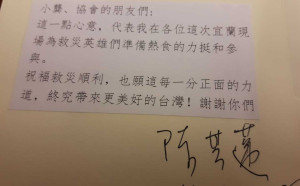 小龔、協會的朋友們:
這一點心意，代表我在各位這次宜蘭現
場為救災英雄們準備熱食的力挺和參
與。
祝福救災順利，也願這每一分正面的力
道，終究帶來更美好的台灣！謝謝你們